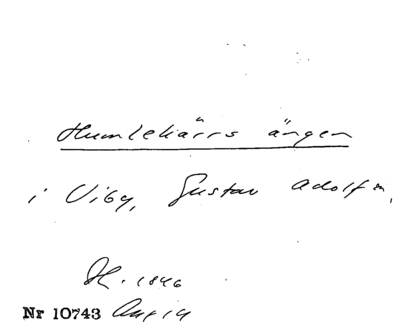 Humlekärrs ängen
i Viby, Gustav Adolf sn.
H. 1846
Nr 10743